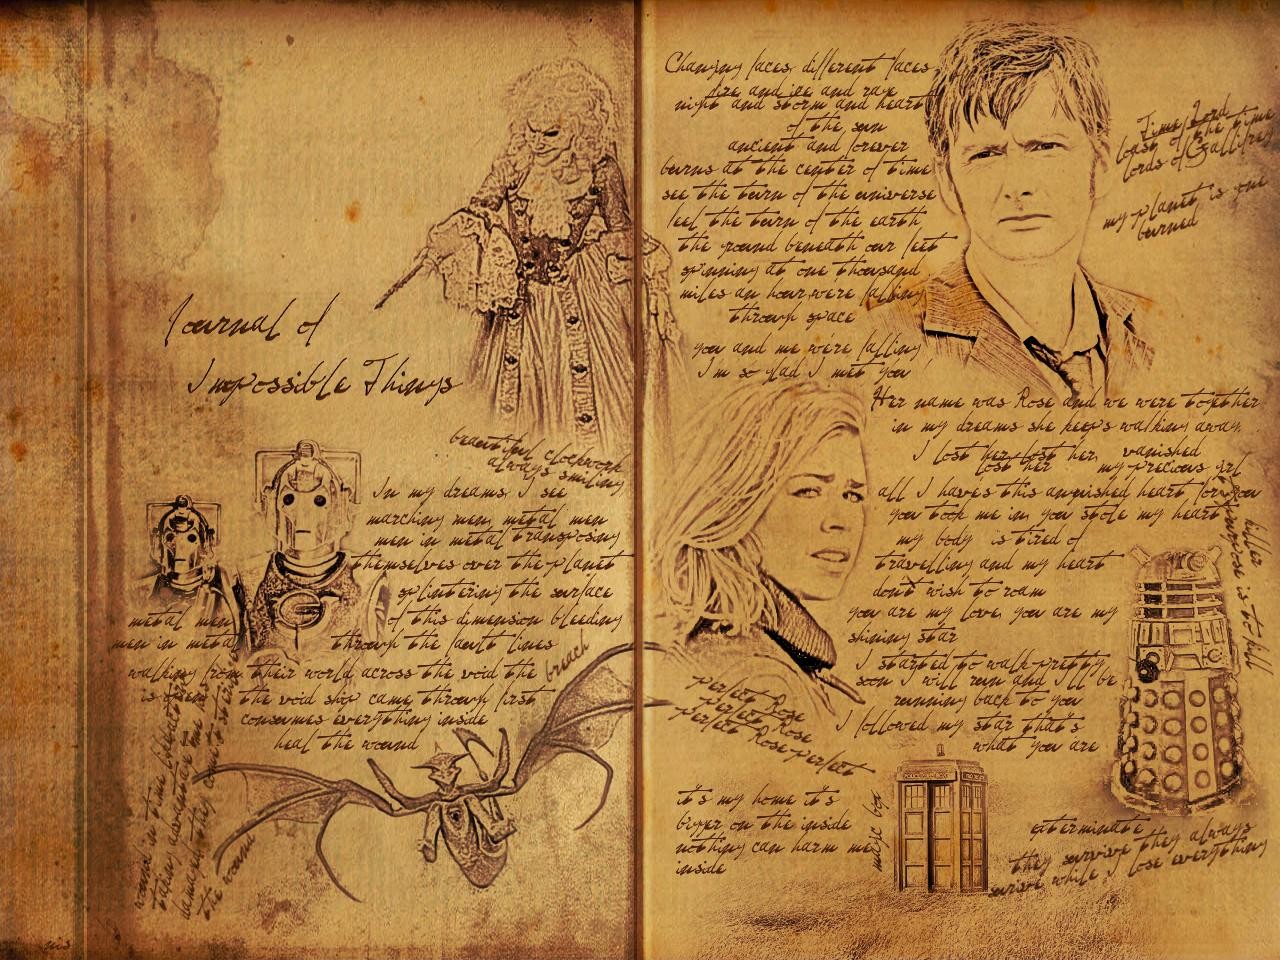 Journal of
Impossible Things
beautiful clockwork
always smiling
In my dreams I see
marching men, metal men
men in metal transposing
themselves over the planet
splintering the surface
of this dimension bleeding
through the fault lines
metal men
men in metal
walking from their world across the void the breach
the void ship came through first
consumes everything inside
heal the wound
wound in time
damaged they come to
the wound
Changing faces, different faces,
fire and ice and rage
night and storm and heart
of the sun
ancient and forever
burns at the center of time
see the turn of the universe
feel the turn of the earth
the ground beneath our feet
spinning at one thousand
miles an hour, were falling
through space
you and me were falling
I'm so glad I met you
Time Lord
of the time
lords of Gallifrey
my planet is gone
burned
Her name was Rose and we were together
in my dreams she keeps walking away,
I lost her, lost her, vanished
lost her my precious girl
all I have is this anguished heart, for you
you took me in, you stole my heart
my body is tired of
travelling and my heart
don't wish to roam
you are my love, you are my
shining star
I started to walk pretty
soon I will run and I'll be
running back to you
I followed my star that's
what you are
killer
purpose is to kill
perfect Rose
perfect Rose
perfect Rose perfect
it's my home it's
bigger on the inside
nothing can harm me
inside
magic box
exterminate
they survive they always
survive while I lose everything